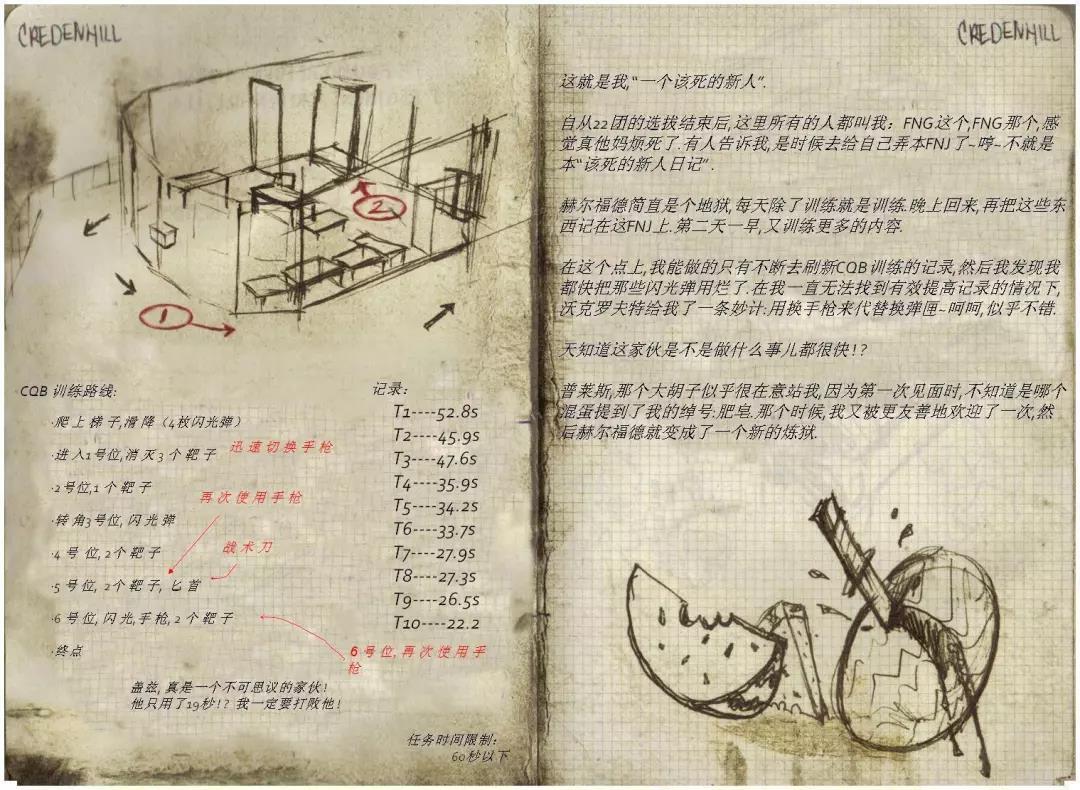 CREDENHILL
1
2
CQB 训练路线:
·爬上梯子,滑降（4枚闪光弹）
·进入1号位,消灭3个靶子
迅速切换手枪
·2号位,1个靶子
再次使用手枪
·转角3号位,闪光弹
·4号位,2个靶子
战术刀
·5号位,2个靶子,匕首
·6号位,闪光,手枪,2个靶子
6号位,再次使用手
枪
·终点
盖兹,真是一个不可思议的家伙!
他只用了19秒!?我一定要打败他!
记录:
T1----52.8s
T2----45.9s
T3----47.6s
T4----35.9s
T5----34.2s
T6----33.7s
T7----27.9s
T8----27.3s
T9----26.5s
T10----22.2
任务时间限制:
60秒以下
CREDENHILL
这就是我,“一个该死的新人”.
自从22团的选拔结束后,这里所有的人都叫我：FNG这个,FNG那个,感
觉真他妈烦死了.有人告诉我,是时候去给自己弄本FNJ了~哼~不就是
本“该死的新人日记”.
赫尔福德简直是个地狱,每天除了训练就是训练.晚上回来,再把这些东
西记在这FNJ上.第二天一早,又训练更多的内容.
在这个点上,我能做的只有不断去刷新CQB训练的记录,然后我发现我
都快把那些闪光弹用烂了.在我一直无法找到有效提高记录的情况下,
沃克罗夫特给我了一条妙计:用换手枪来代替换弹匣~呵呵,似乎不错.
天知道这家伙是不是做什么事儿都很快!?
普莱斯,那个大胡子似乎很在意站我,因为第一次见面时,不知道是哪个
混蛋提到了我的绰号:肥皂.那个时候,我又被更友善地欢迎了一次,然
后赫尔福德就变成了一个新的炼狱.